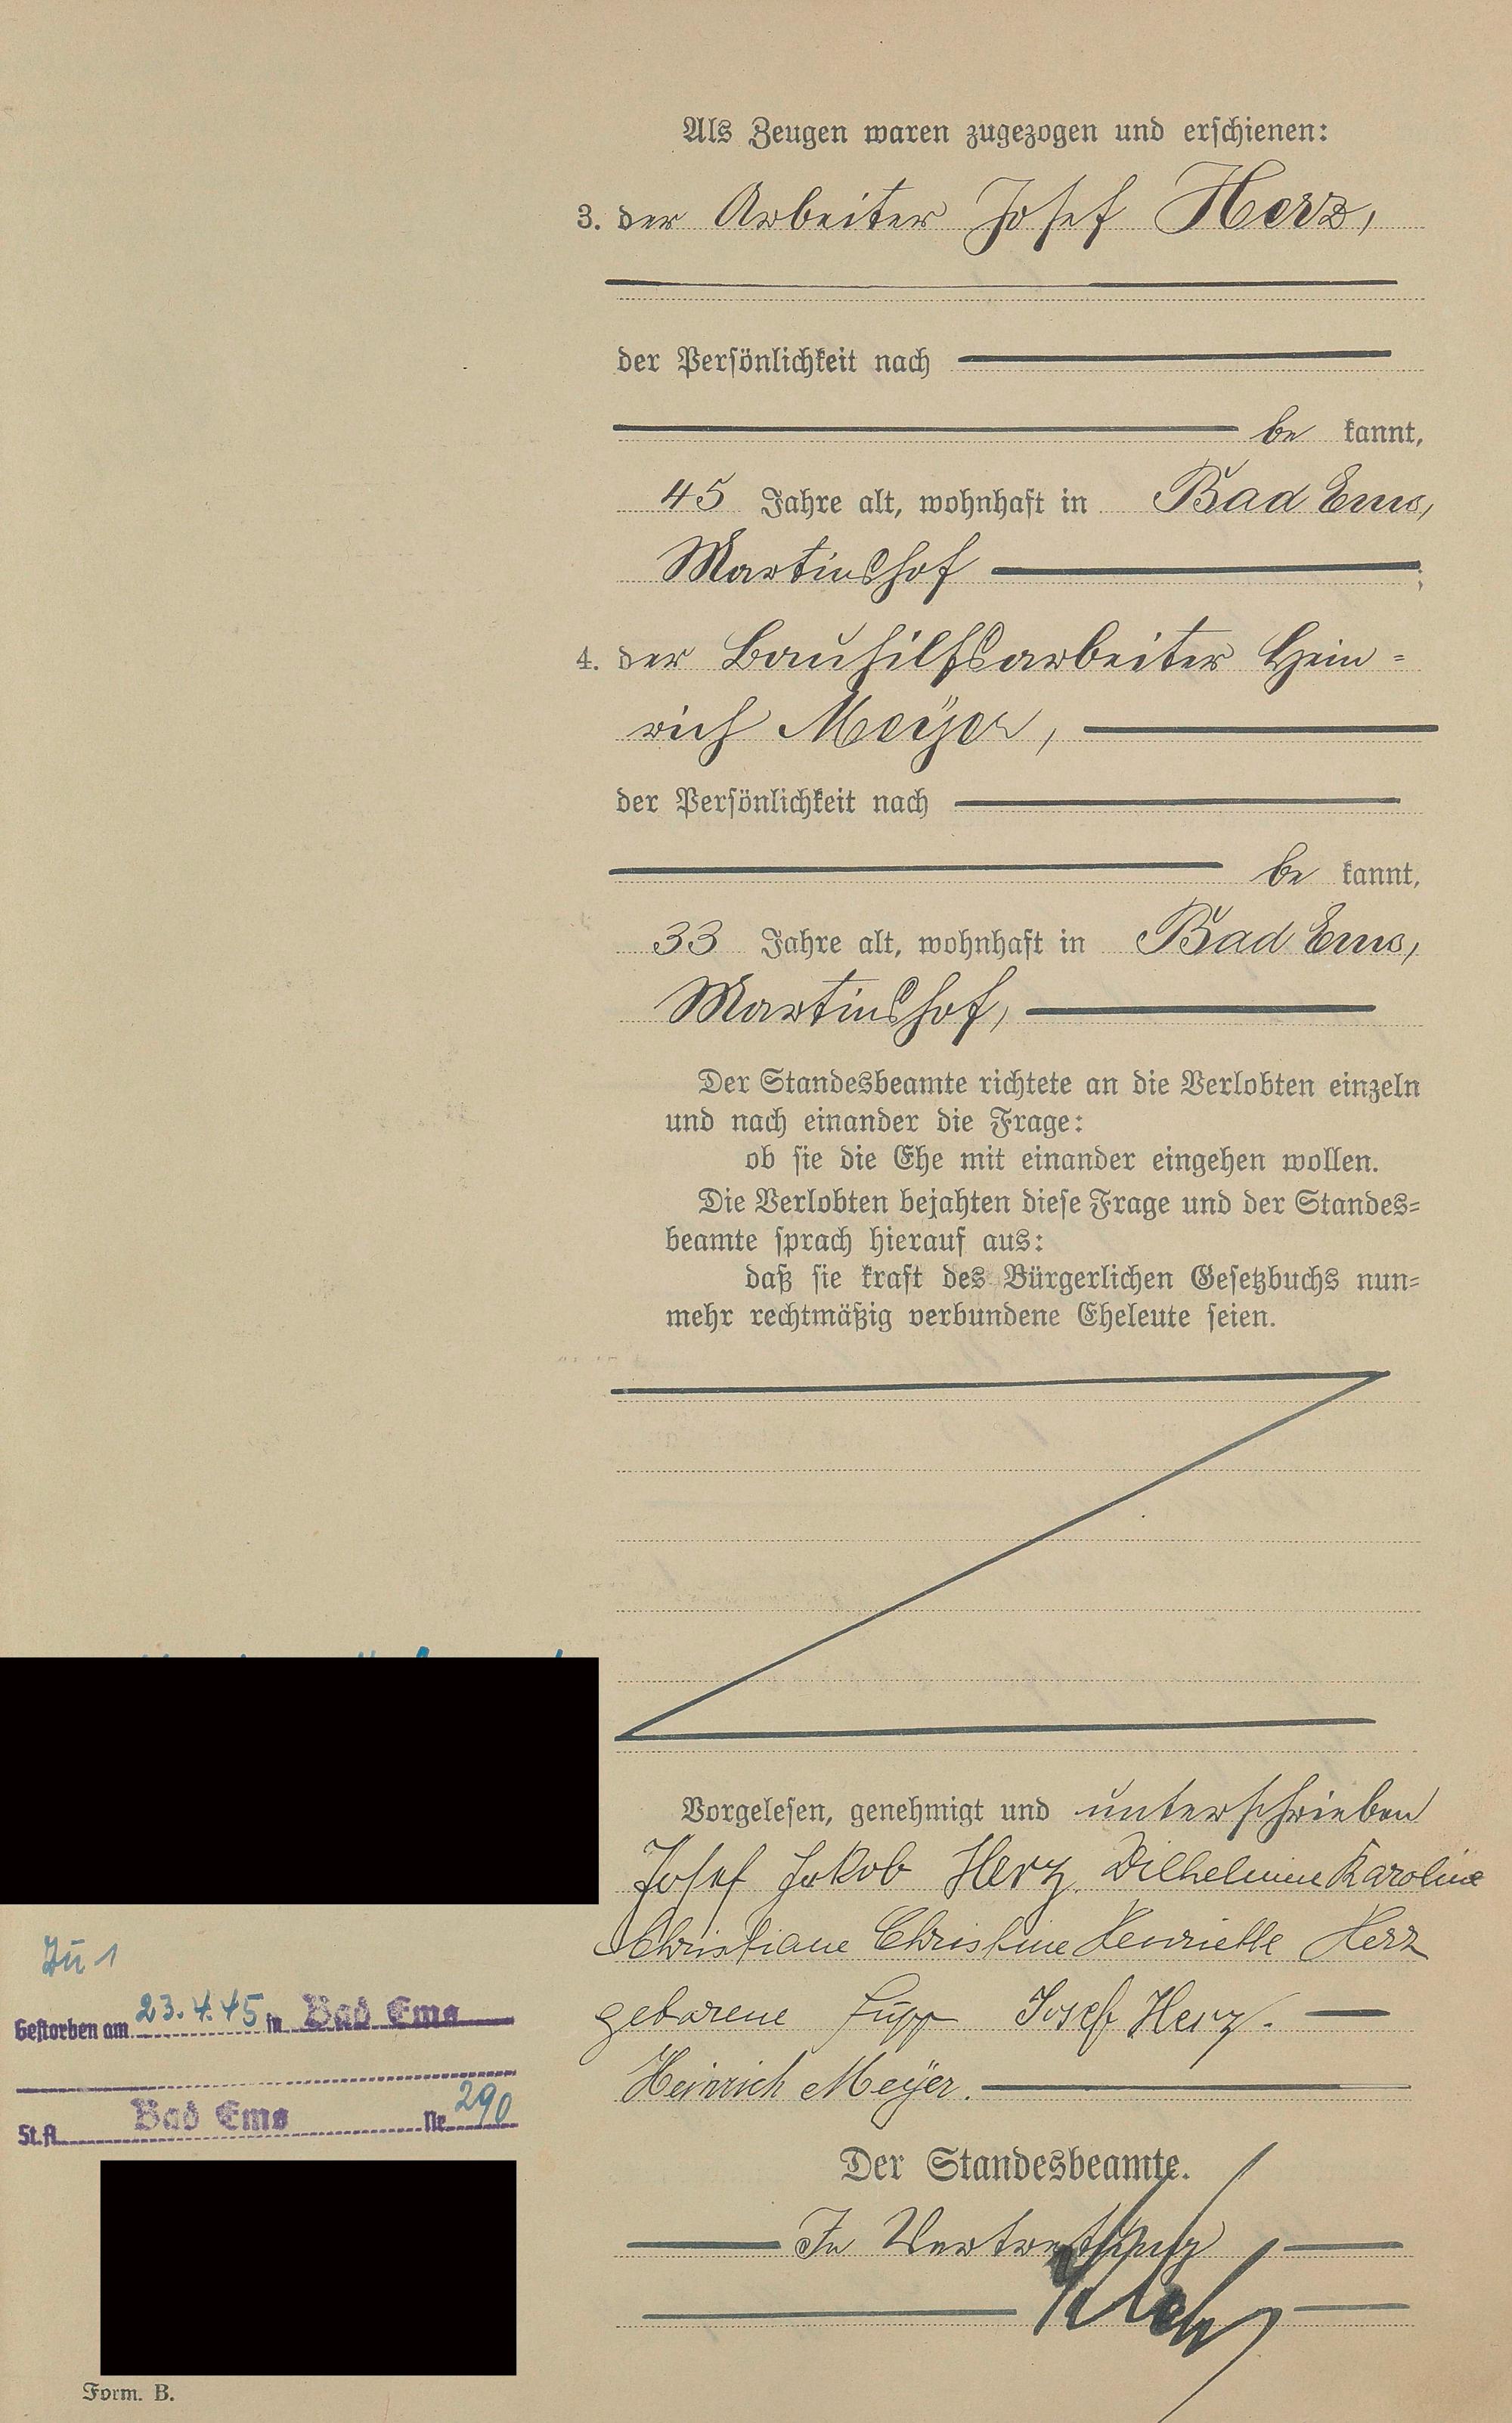 Als Zeugen waren zugezogen und erschienen:
3. der Arbeiter Josef Herz,
der Persönlichkeit nach
be kannt,
45 Jahre alt, wohnhaft in Bad Ems,
Martinshof ;
4. der Bauhilfsarbeiter Hein=
rich Meÿer,
der Persönlichkeit nach
be kannt,
33 Jahre alt, wohnhaft in Bad Ems,
Martinshof,
Der Standesbeamte richtete an die Verlobten einzeln
und nach einander die Frage:
ob sie die Ehe mit einander eingehen wollen.
Die Verlobten bejahten diese Frage und der Standes=
beamte sprach hierauf aus:
daß sie kraft des Bürgerlichen Gesetzbuchs nun=
mehr rechtmäßig verbundene Eheleute seien.
Vorgelesen, genehmigt und unterschrieben
Josef Jakob Herz. Wilhelmine Karoline
Christiane Christine Henriette Herz
geborene Josef Herz.
Heinrich Meÿer.
Der Standesbeamte.
In Vertretung
Zu 1
Gestorben am 23.4.45 in Bad Ems
St.A. Bad Ems Nr. 290
Form. B.